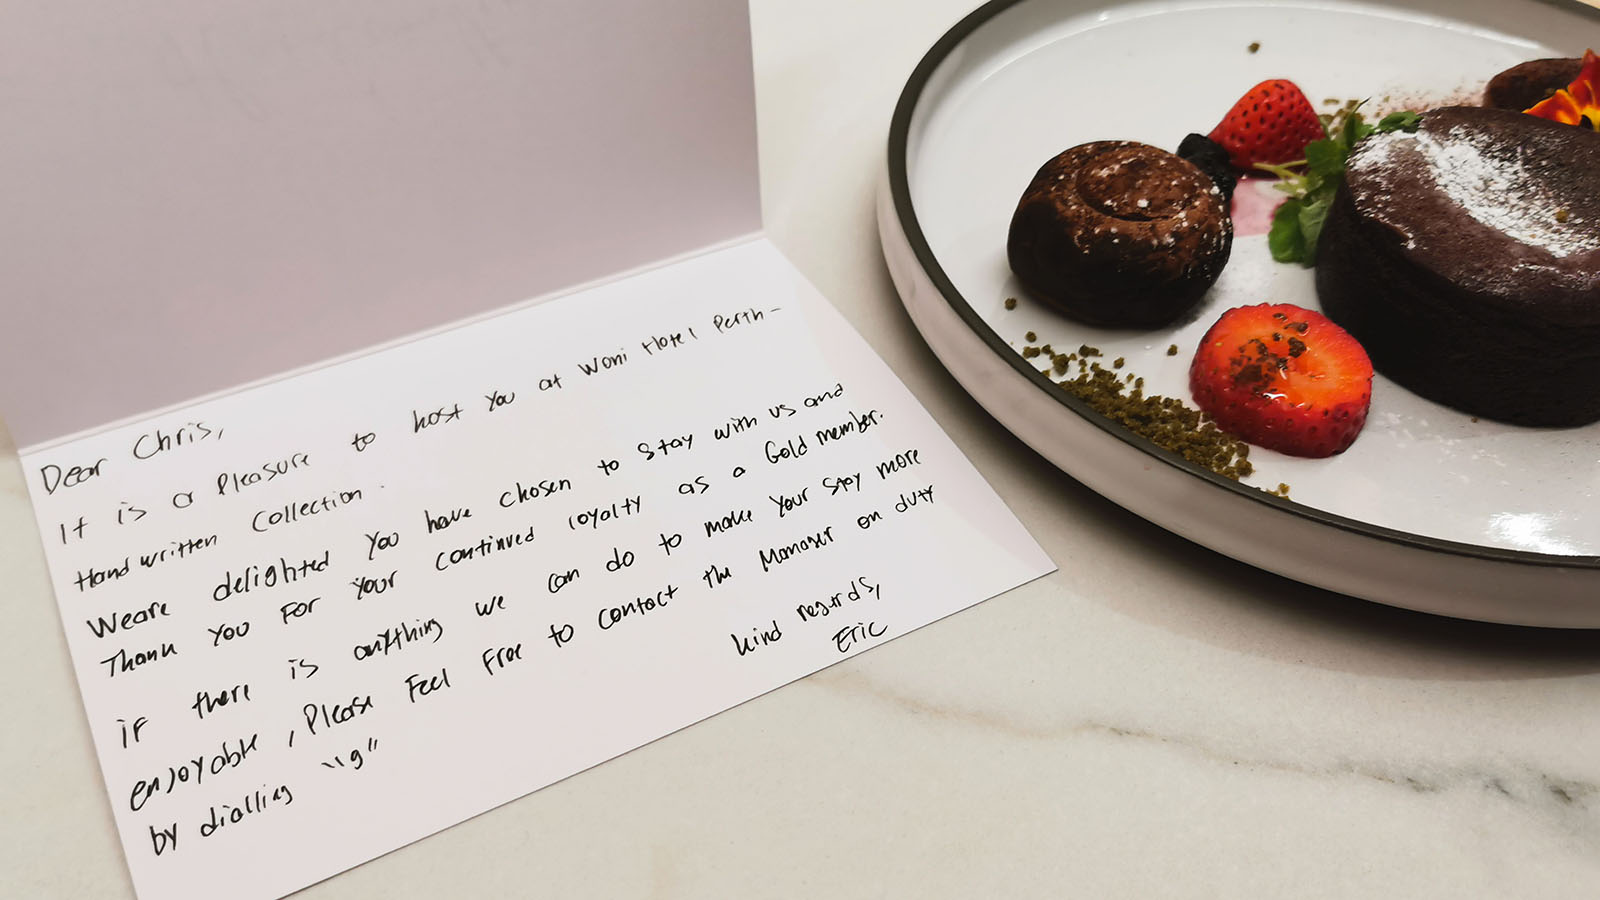 Dear Chris,
It is a Pleasure to host you at Womi Hotel Perth -
Handwritten Collection.
Weare delighted you have chosen to stay with us and
Thank you For your continued loyalty as a Gold member.
if there is anything we can do to make your stay more
enjoyable, Please Feel Free to contact the Manager on duty
by dialling "9"
kind regards,
Eric